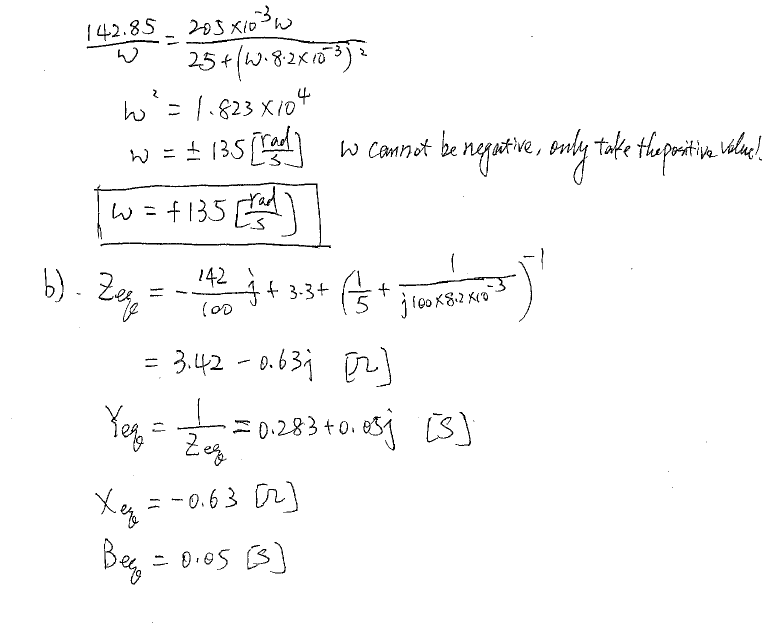 142.85/w = 205 × 10⁻³w / 25 + (w·8.2×10⁻³)²
w² = 1.823 × 10⁴
w = ± 135 [rad/s] w cannot be negative, only take the positive value!
w = +135 [rad/s]
b). Zeq = - 142/100 j + 3.3 + (1/5 + 1/j100×8.2×10⁻³)⁻¹
= 3.42 - 0.63j [Ω]
Yeq = 1/Zeq = 0.283 + 0.05j [S]
Xeq = -0.63 [Ω]
Beq = 0.05 [S]